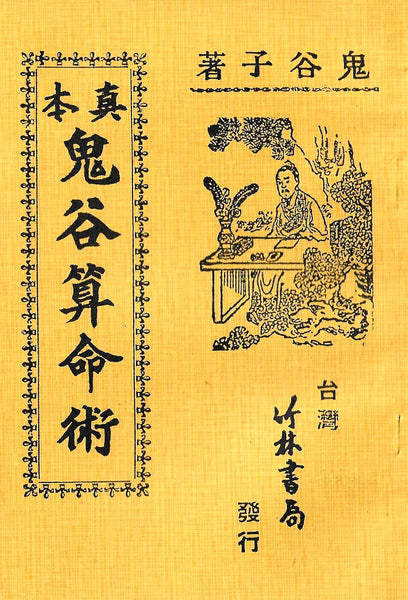 鬼谷子著
真本
鬼谷算命術
台灣
竹林書局
發行